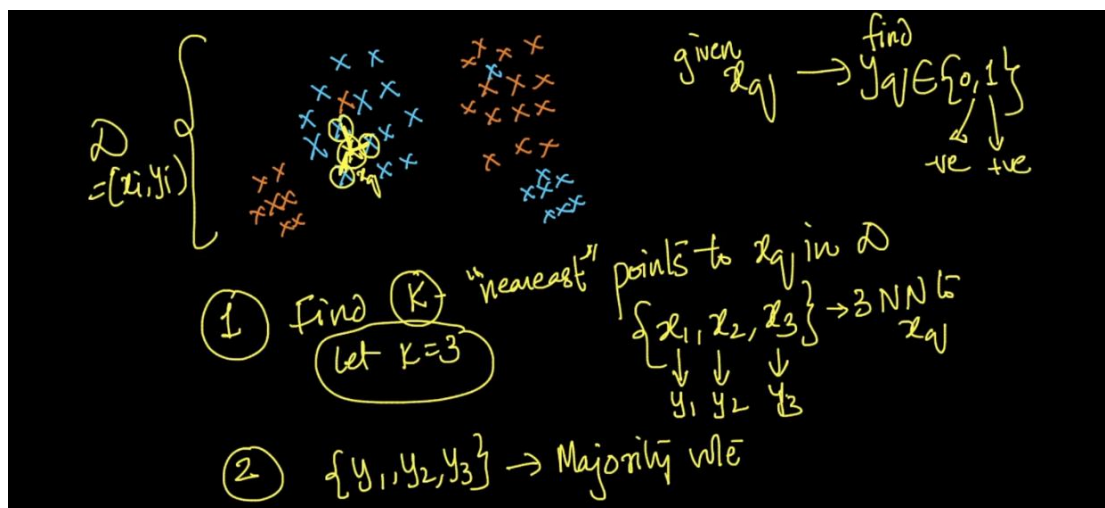 given x_q → find y_q ∈ {0,1}
-ve +ve
D
= {x_i, y_i}
x_q
1 Find K- "neareast" points to x_q in D
let K=3
{x_1, x_2, x_3} → 3 NN to x_q
y_1 y_2 y_3
2 {y_1, y_2, y_3} → Majority vote